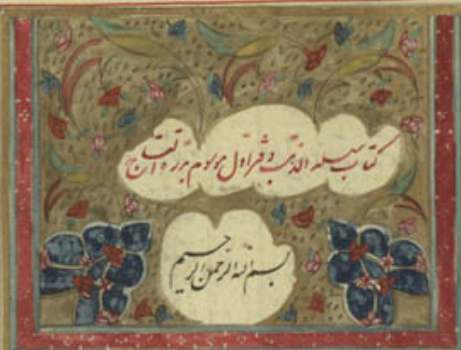 کتاب سلسلة الذهب دفتر اول موسوم بدرة التاج
بسم الله الرحمن الرحیم